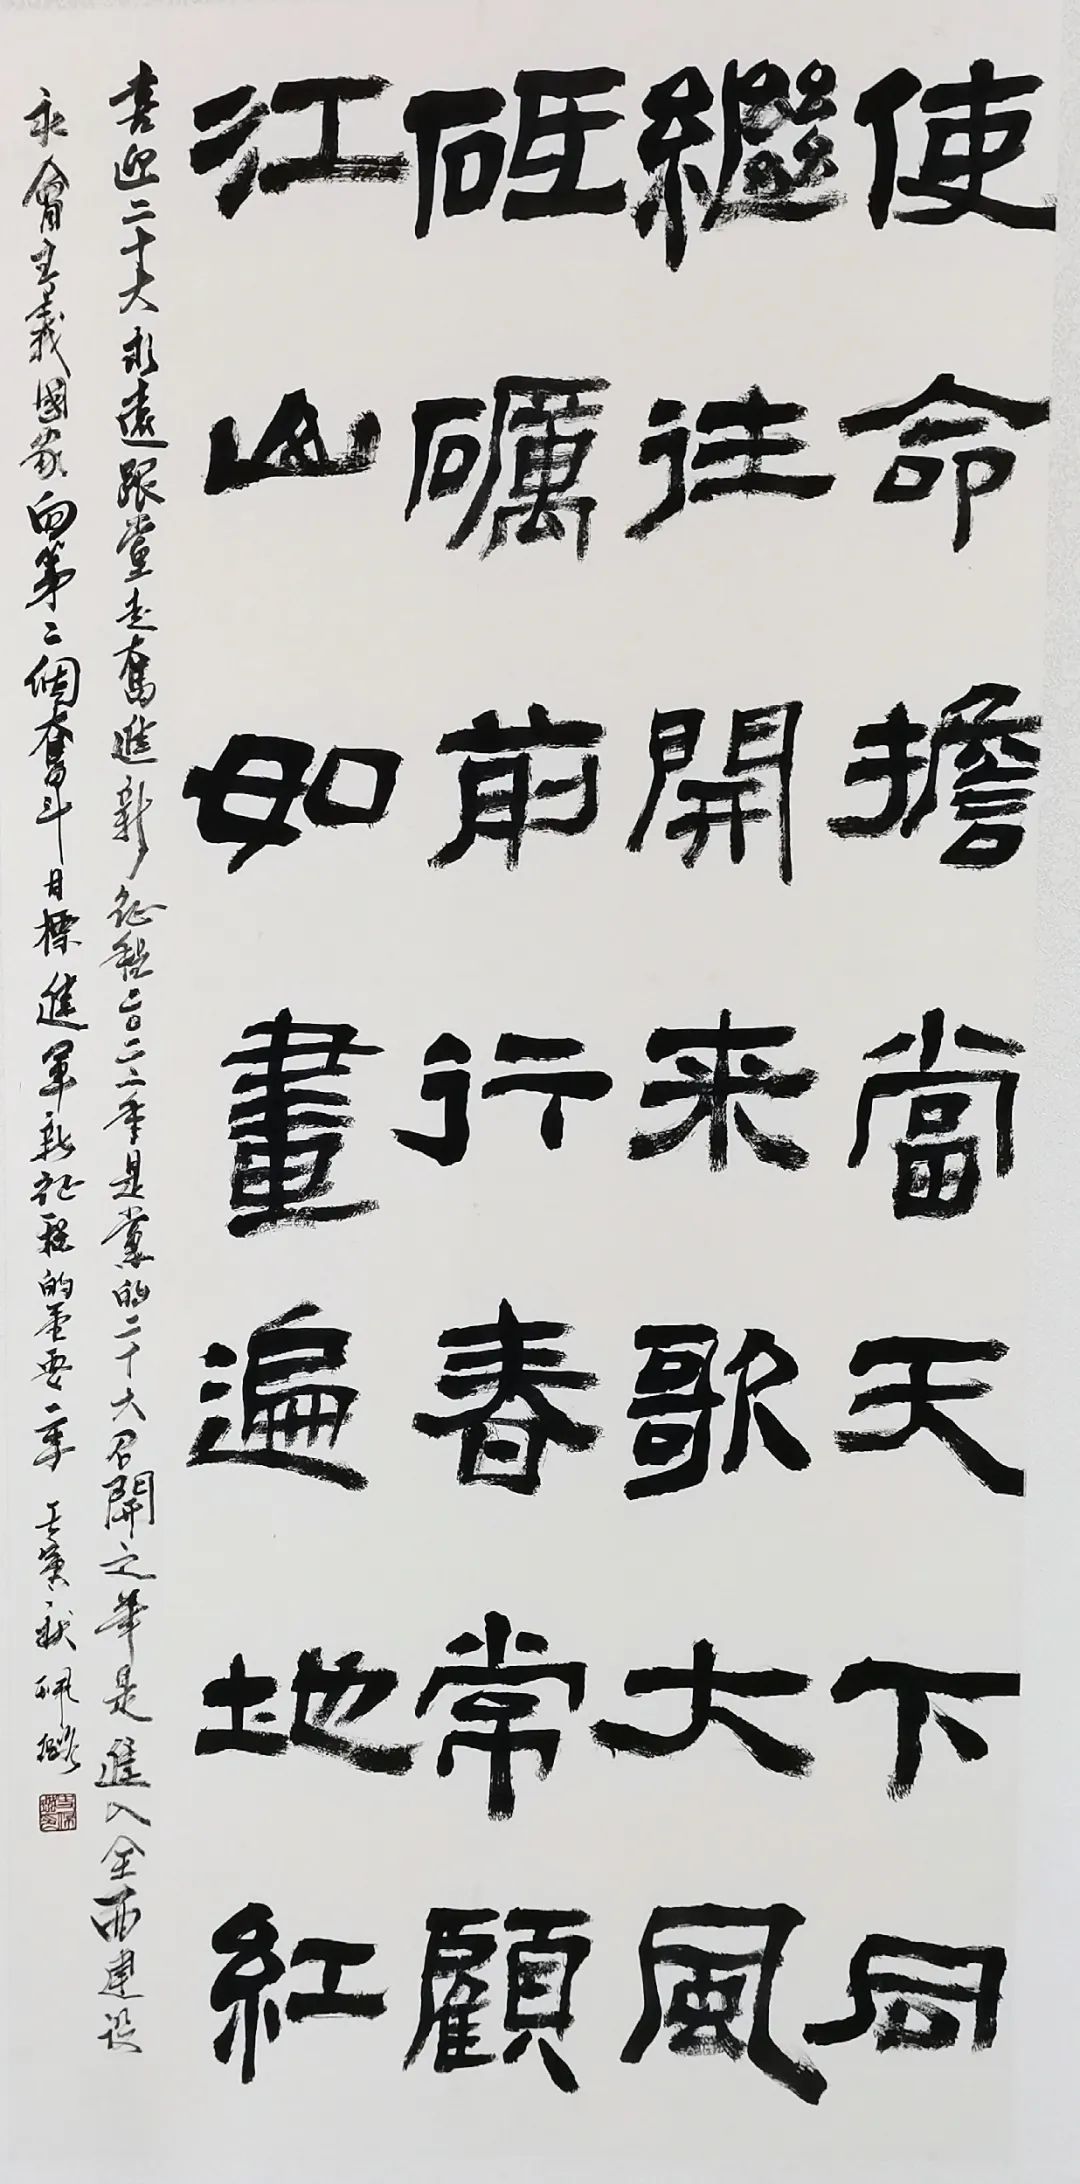 使命擔當天下同
繼往開来歌大風
砥礪前行春常顧
江山如畫遍地紅
喜迎二十大永遠跟黨走奮進新征程二〇二二年是黨的二十大召開之年是進入全面建设
社會主義國家向第二個奮斗目標進軍新征程的重要一年 壬寅秋